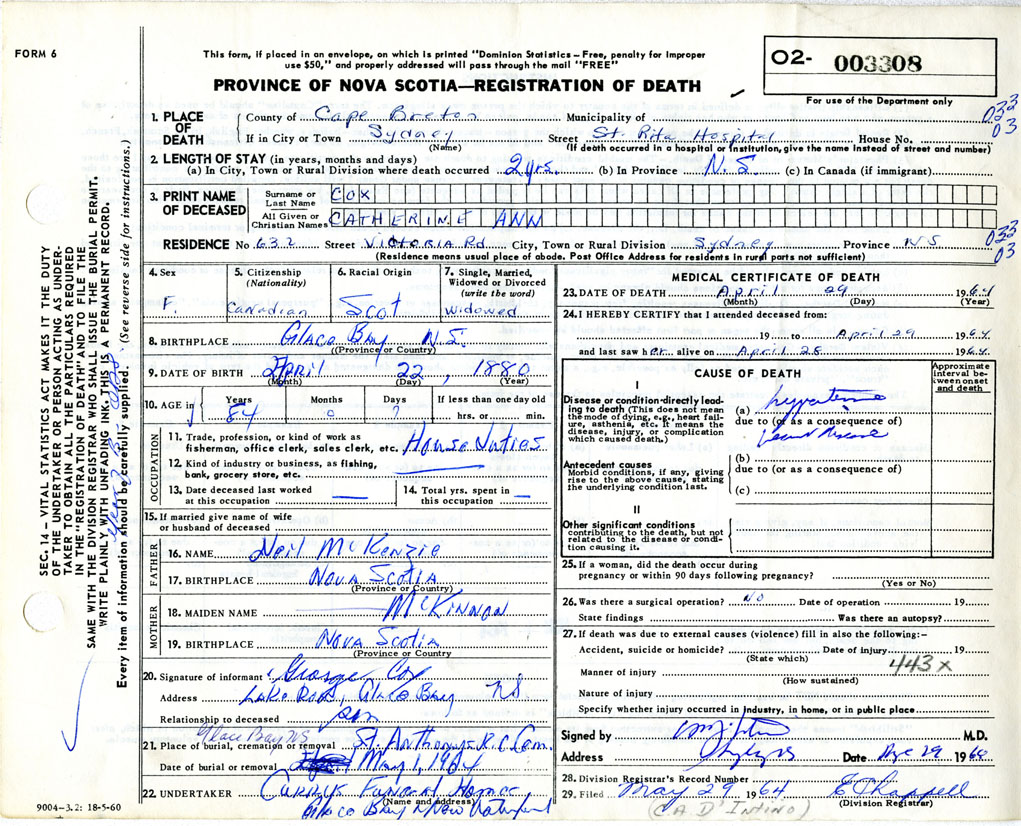 FORM 6
This form, if placed in an envelope, on which is printed "Dominion Statistics – Free, penalty for improper
use $50," and properly addressed will pass through the mail "FREE"
PROVINCE OF NOVA SCOTIA—REGISTRATION OF DEATH
O2- 003308
For use of the Department only
1. PLACE OF DEATH
County of Cape Breton Municipality of
033
03
If in City or Town Sydney Street St. Rita Hospital House No.
(Name) (If death occurred in a hospital or institution, give the name instead of street and number)
2. LENGTH OF STAY (in years, months and days)
(a) In City, Town or Rural Division where death occurred 2 yrs. (b) In Province N.S. (c) In Canada (if immigrant)
3. PRINT NAME OF DECEASED
Surname or Last Name COX
All Given or Christian Names CATHERINE ANN
RESIDENCE No 632 Street Victoria Rd City, Town or Rural Division Sydney Province NS
033
03
(Residence means usual place of abode. Post Office Address for residents in rural parts not sufficient)
4. Sex
F.
5. Citizenship
(Nationality)
Canadian
6. Racial Origin
Scot
7. Single, Married,
Widowed or Divorced
(write the word)
Widowed
8. BIRTHPLACE Glace Bay N.S.
(Province or Country)
9. DATE OF BIRTH April 22, 1880
(Month) (Day) (Year)
10. AGE in
Years Months Days If less than one day old
84 0 7 hrs. or min.
OCCUPATION
11. Trade, profession, or kind of work as
fisherman, office clerk, sales clerk, etc. House Duties
12. Kind of industry or business, as fishing,
bank, grocery store, etc.
13. Date deceased last worked
at this occupation
14. Total yrs. spent in
this occupation
15. If married give name of wife
or husband of deceased
FATHER
16. NAME Neil McKenzie
17. BIRTHPLACE Nova Scotia
(Province or Country)
MOTHER
18. MAIDEN NAME McKinnon
19. BIRTHPLACE Nova Scotia
(Province or Country
20. Signature of informant George Cox
Address Lake Road, Glace Bay NS
Relationship to deceased son
Glace Bay NS
21. Place of burial, cremation or removal St. Anthonys R.C. Cem.
Date of burial or removal May 1, 1964
22. UNDERTAKER Currys Funeral Homes
(Name and address)
Glace Bay & New Waterford
9004–3.2: 18-5-60
MEDICAL CERTIFICATE OF DEATH
23. DATE OF DEATH April 29 1964
(Month) (Day) (Year)
24. I HEREBY CERTIFY that I attended deceased from:
19 to April 29 1964
and last saw her alive on April 28 1964
CAUSE OF DEATH
Approximate
interval be-
tween onset
and death
I
Disease or condition directly lead-
ing to death (This does not mean
the mode of dying, e.g., heart fail-
ure, asthenia, etc. It means the
disease, injury, or complication
which caused death.)
(a) hypertensive
due to (or as a consequence of)
heart disease
Antecedent causes
Morbid conditions, if any, giving
rise to the above cause, stating
the underlying condition last.
(b)
due to (or as a consequence of)
(c)
II
Other significant conditions
contributing to the death, but not
related to the disease or condi-
tion causing it.
25. If a woman, did the death occur during
pregnancy or within 90 days following pregnancy?
(Yes or No)
26. Was there a surgical operation? NO Date of operation 19
State findings Was there an autopsy?
27. If death was due to external causes (violence) fill in also the following:–
Accident, suicide or homicide? Date of injury 19
(State which)
443x
Manner of injury
(How sustained)
Nature of injury
Specify whether injury occurred in industry, in home, or in public place
Signed by M.D.
Address Date Apr 29 1964
28. Division Registrar's Record Number
29. Filed May 29 1964 E Chappell
(Division Registrar)
(C.A. D'Intino)
SEC. 14 – VITAL STATISTICS ACT MAKES IT THE DUTY
OF THE UNDERTAKER OR PERSON ACTING AS UNDER-
TAKER TO OBTAIN ALL THE PARTICULARS REQUIRED
IN THE "REGISTRATION OF DEATH" AND TO FILE THE
SAME WITH THE DIVISION REGISTRAR WHO SHALL ISSUE THE BURIAL PERMIT.
WRITE PLAINLY WITH UNFADING INK–THIS IS A PERMANENT RECORD.
Every item of information should be carefully supplied. (See reverse side for instructions.)